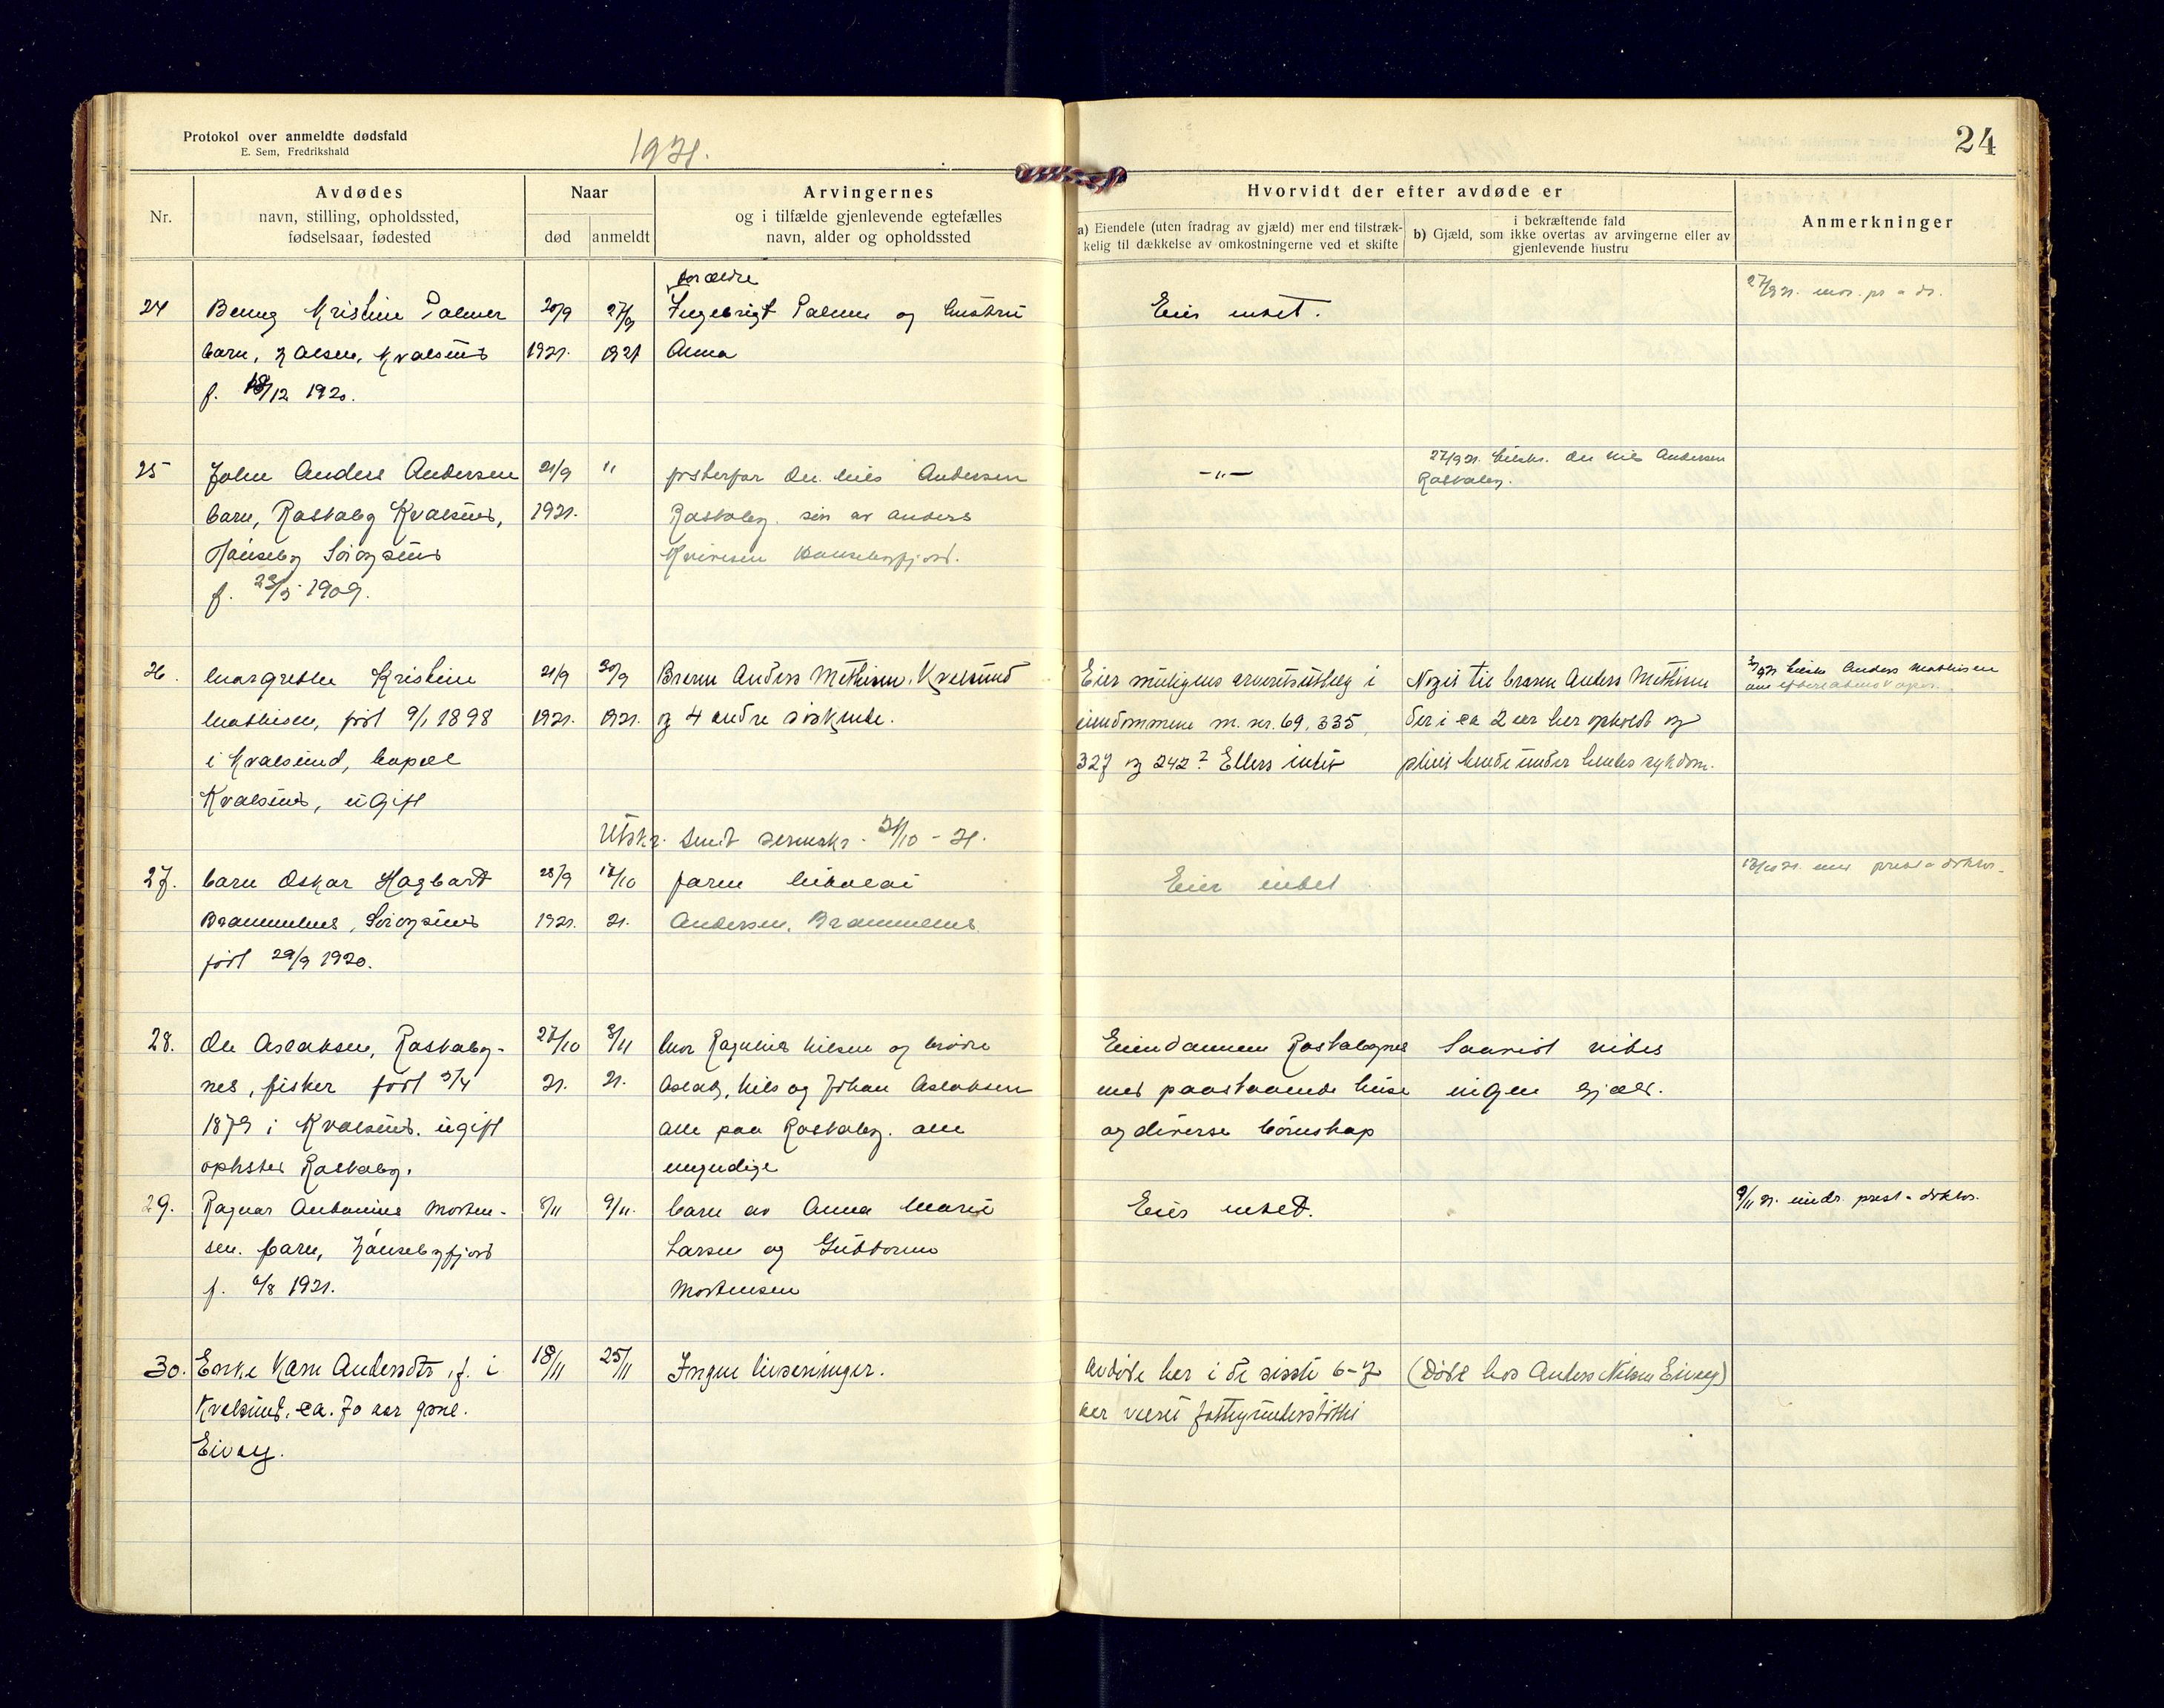 Protokol over anmeldte dødsfald
E. Sem, Fredrikshald
1921.
24
Nr.
Avdødes
navn, stilling, opholdssted,
fødselsaar, fødested
Naar
død
anmeldt
Arvingernes
og i tilfælde gjenlevende egtefælles
navn, alder og opholdssted
Hvorvidt der efter avdøde er
a) Eiendele (uten fradrag av gjæld) mer end tilstræk-
kelig til dækkelse av omkostningerne ved et skifte
i bekræftende fald
b) Gjæld, som ikke overtas av arvingerne eller av
gjenlevende hustru
Anmerkninger
24
Benny Kristine Palmer
barn, Kvalsund
f. 18/12 1920.
20/9
1921.
27/9
1921
forældre
Ingebrigt Palmer og hustru
Anna
Eier intet.
27/9 21.
25
John Anders Andersen
barn, Rastaby Kvalsund,
Sørøysund
f. 23/5 1909.
21/9
1921.
"
fosterfar Ole Nils Andersen
Rastaby. søn av Anders
-"-
27/9 21. Ole Nils Andersen
Rastaby.
26.
Margrethe Kristine
Mathisen, født 9/1 1898
i Kvalsund, bopæl
Kvalsund, ugift
21/9
1921.
30/9
1921.
Broren Anders Mathisen, Kvalsund
og 4 andre søskende.
Eier muligens arveretsutlæg i
eiendommene m. nr. 69, 335,
327 og 242? Ellers intet
Noget til broren Anders Mathisen
der i ca 2 aar har opholdt og
pleiet hende under hendes sykdom.
Anders Mathisen
Utskr. sendt 31/10 - 21.
27.
barn Oskar Hagbart
Brammenes, Sørøysund
født 29/9 1920.
28/9
1921.
12/10
21.
faren Nikolai
Andersen, Brammenes.
Eier intet
prest - doktor.
28.
Ole Aslaksen, Rastaby-
nes, fisker født 3/4
1879 i Kvalsund. ugift
opholdssted Rastaby.
27/10
21.
3/11
21.
Mor Ragnhild Nilsen og brødre
Aslak, Nils og Johan Aslaksen
alle paa Rastaby. alle
myndige
Eiendommen Rastabynes
med paastaaende huse
og diverse bohuskap
Saavidt vites
ingen gjæld.
29.
Ragnar Antonius Morten-
sen. barn,
f. 6/8 1921.
8/11
9/11.
barn av Anna Marie
Larsen og Guttorm
Mortensen
Eier intet.
9/11 21. prest - doktor.
30.
Enke Karn Andersdtr, f. i
Kvalsund. ca. 70 aar gml.
18/11
25/11
Ingen livsarvinger.
Avdøde har i de sisste 6-7
aar været fattigunderstøttet
(Døde hos Anders Nilsen)